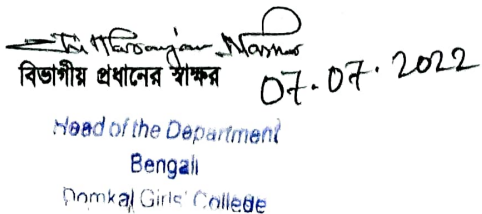 বিভাগীয় প্রধানের স্বাক্ষর
07.07.2022
Head of the Department
Bengali
Domkal Girls' College